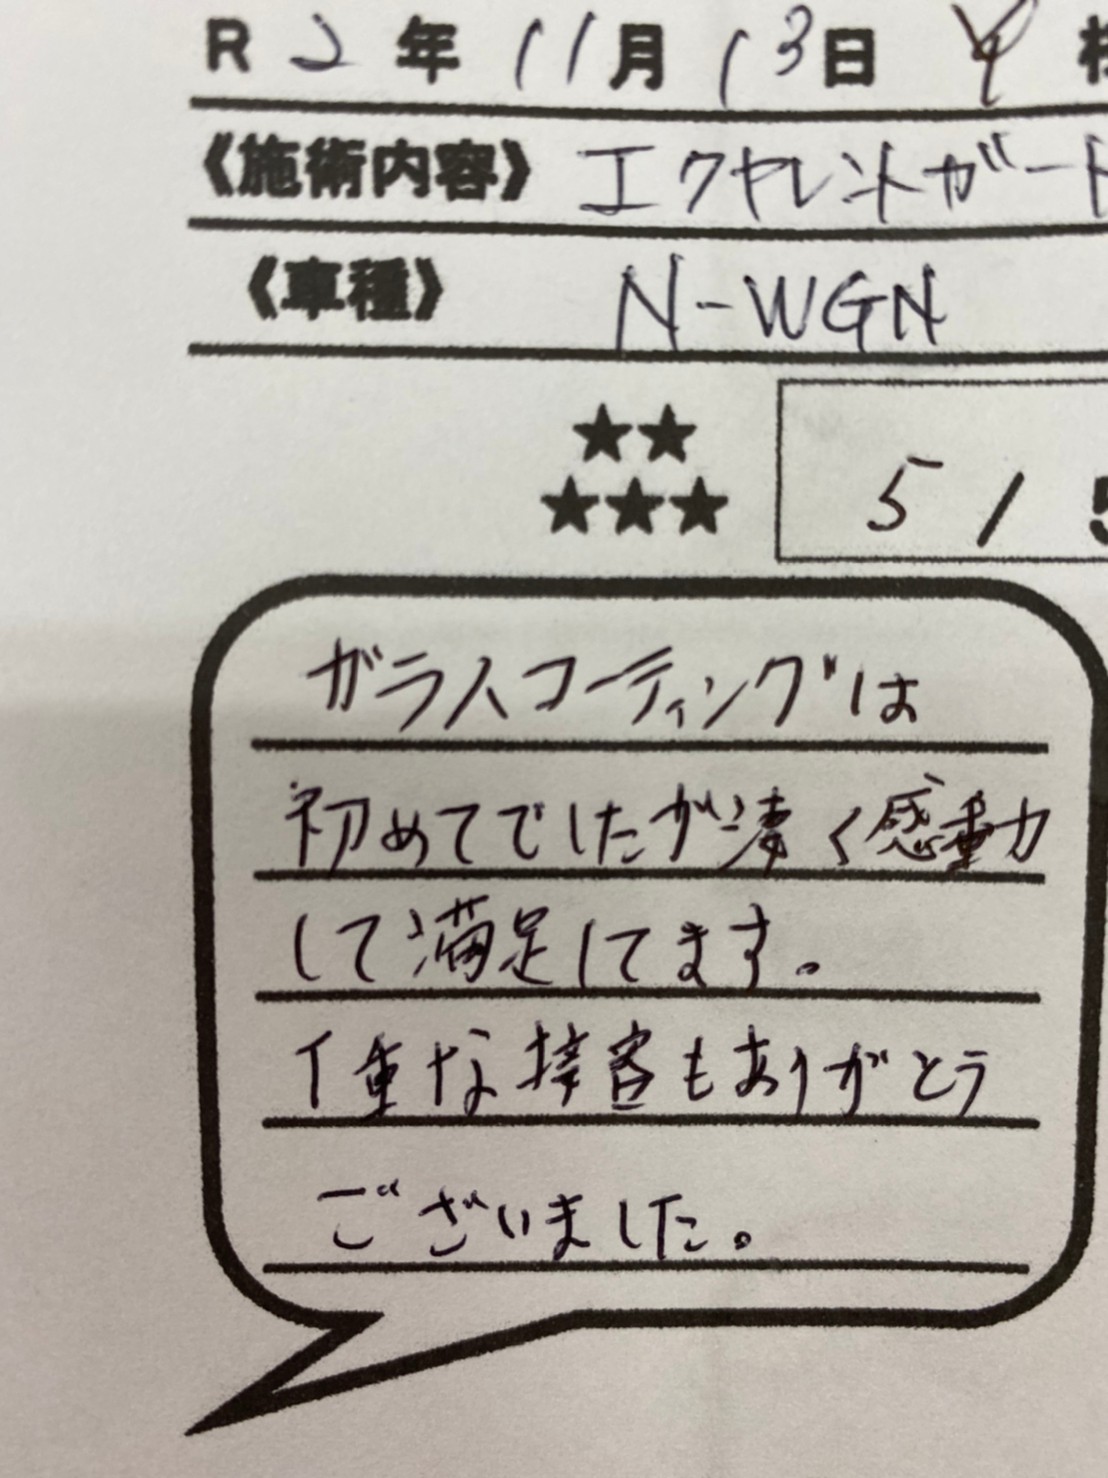 R 2 年 11 月 13 日 Y 様
《施術内容》 エクセレントガード
《車種》 N-WGN
★★
★★★ 5 / 5
ガラスコーティングは
初めてでしたが凄く感動
して満足してます。
丁重な接客もありがとう
ございました。